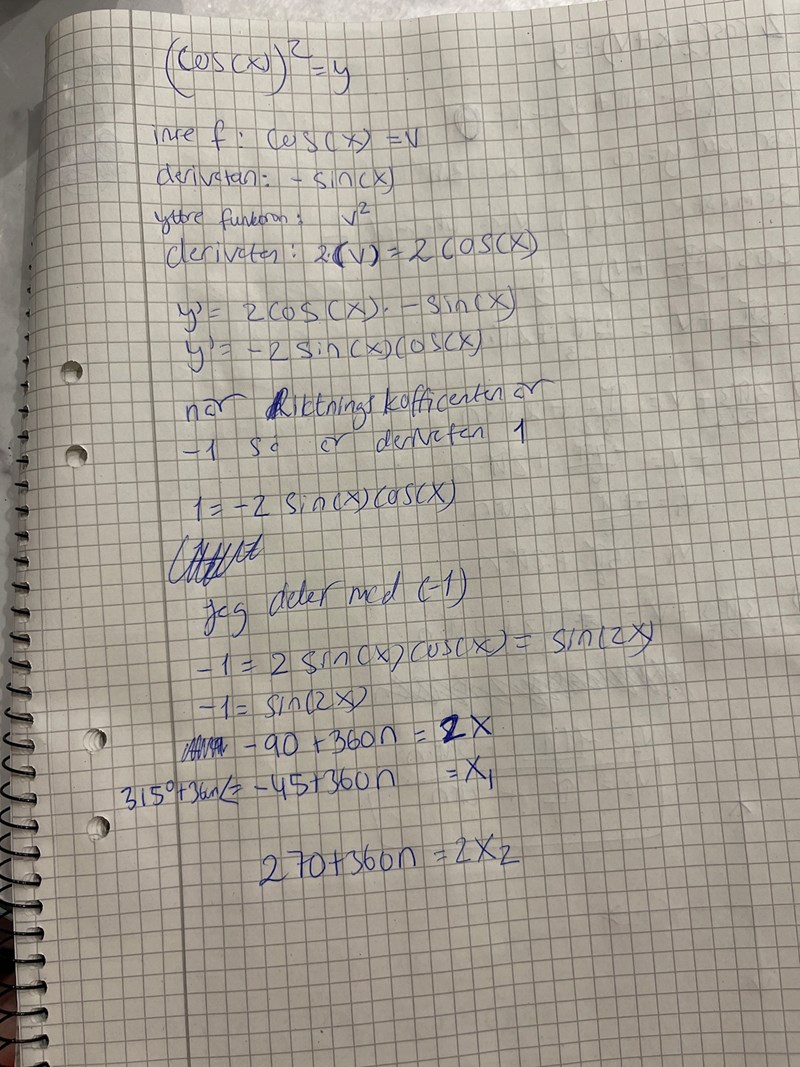 (cos(x))² = y
inre f: cos(x) = v
derivatan: - sin(x)
yttre funktion: v²
derivatan: 2·(v) = 2cos(x)
y' = 2cos(x)·-sin(x)
y' = -2 sin(x)cos(x)
när Riktningskofficenten är
-1 så är derivatan 1
1 = -2 sin(x)cos(x)
jag delar med (-1)
-1 = 2 sin(x)cos(x) = sin(2x)
-1 = sin(2x)
-90 + 360n = 2x
315° + 36n = -45+360n = x₁
270+360n = 2x₂